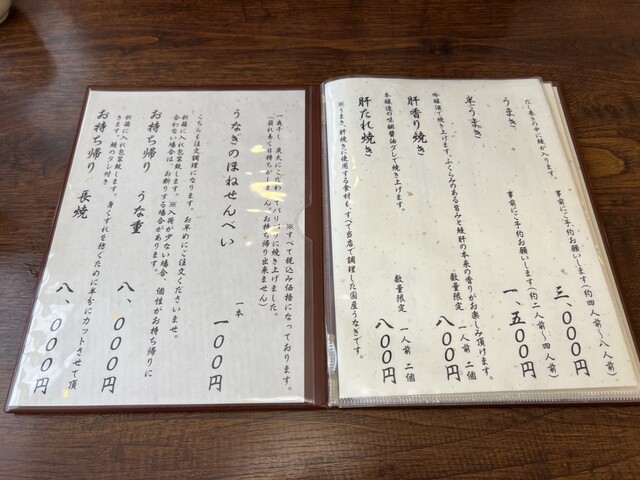 だし巻き卵の中に鰻が入ります。
うまき　事前にご予約お願いします（約四人前～八人前）　三、〇〇〇円
半うまき　事前にご予約お願いします（約二人前～四人前）　一、五〇〇円
吟醸酒で焼き上げます。ふくらみのある旨みと鰻肝の本来の香りがお楽しみ頂けます。
肝香り焼き　数量限定　一人前　二個　八〇〇円
本醸造の味醂醤油ダレで焼き上げます。
肝たれ焼き　数量限定　一人前　二個　八〇〇円
※うまき、肝焼きに使用する食材も、すべて当店で調理した国産うなぎです。
※すべて税込み価格になっております。
一夜干し、炭火にこだわってパリパリに焼き上げました。
（蒸れるので日持ちがしません。お持ち帰り出来ません）
うなぎのほねせんべい　一本　一〇〇円
こちらも注文調理になります。お早めにご注文くださいませ。
折箱に入れ包装致します。※入荷が少ない場合、個性がお持ち帰りに
合わない場合は、お断りする場合があります。
お持ち帰り　うな重　八、〇〇〇円
折箱に入れ包装致します。身くずれを防ぐために半分にカットさせて頂
きます。鰻のタレ付き
お持ち帰り　長焼　八、〇〇〇円